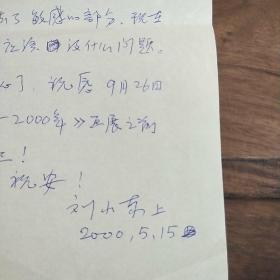 了敏感的部分,现在
应该没什么问题。
了,祝愿9月26日
—2000年》画展之前
!
祝安!
刘小东上
2000,5.15